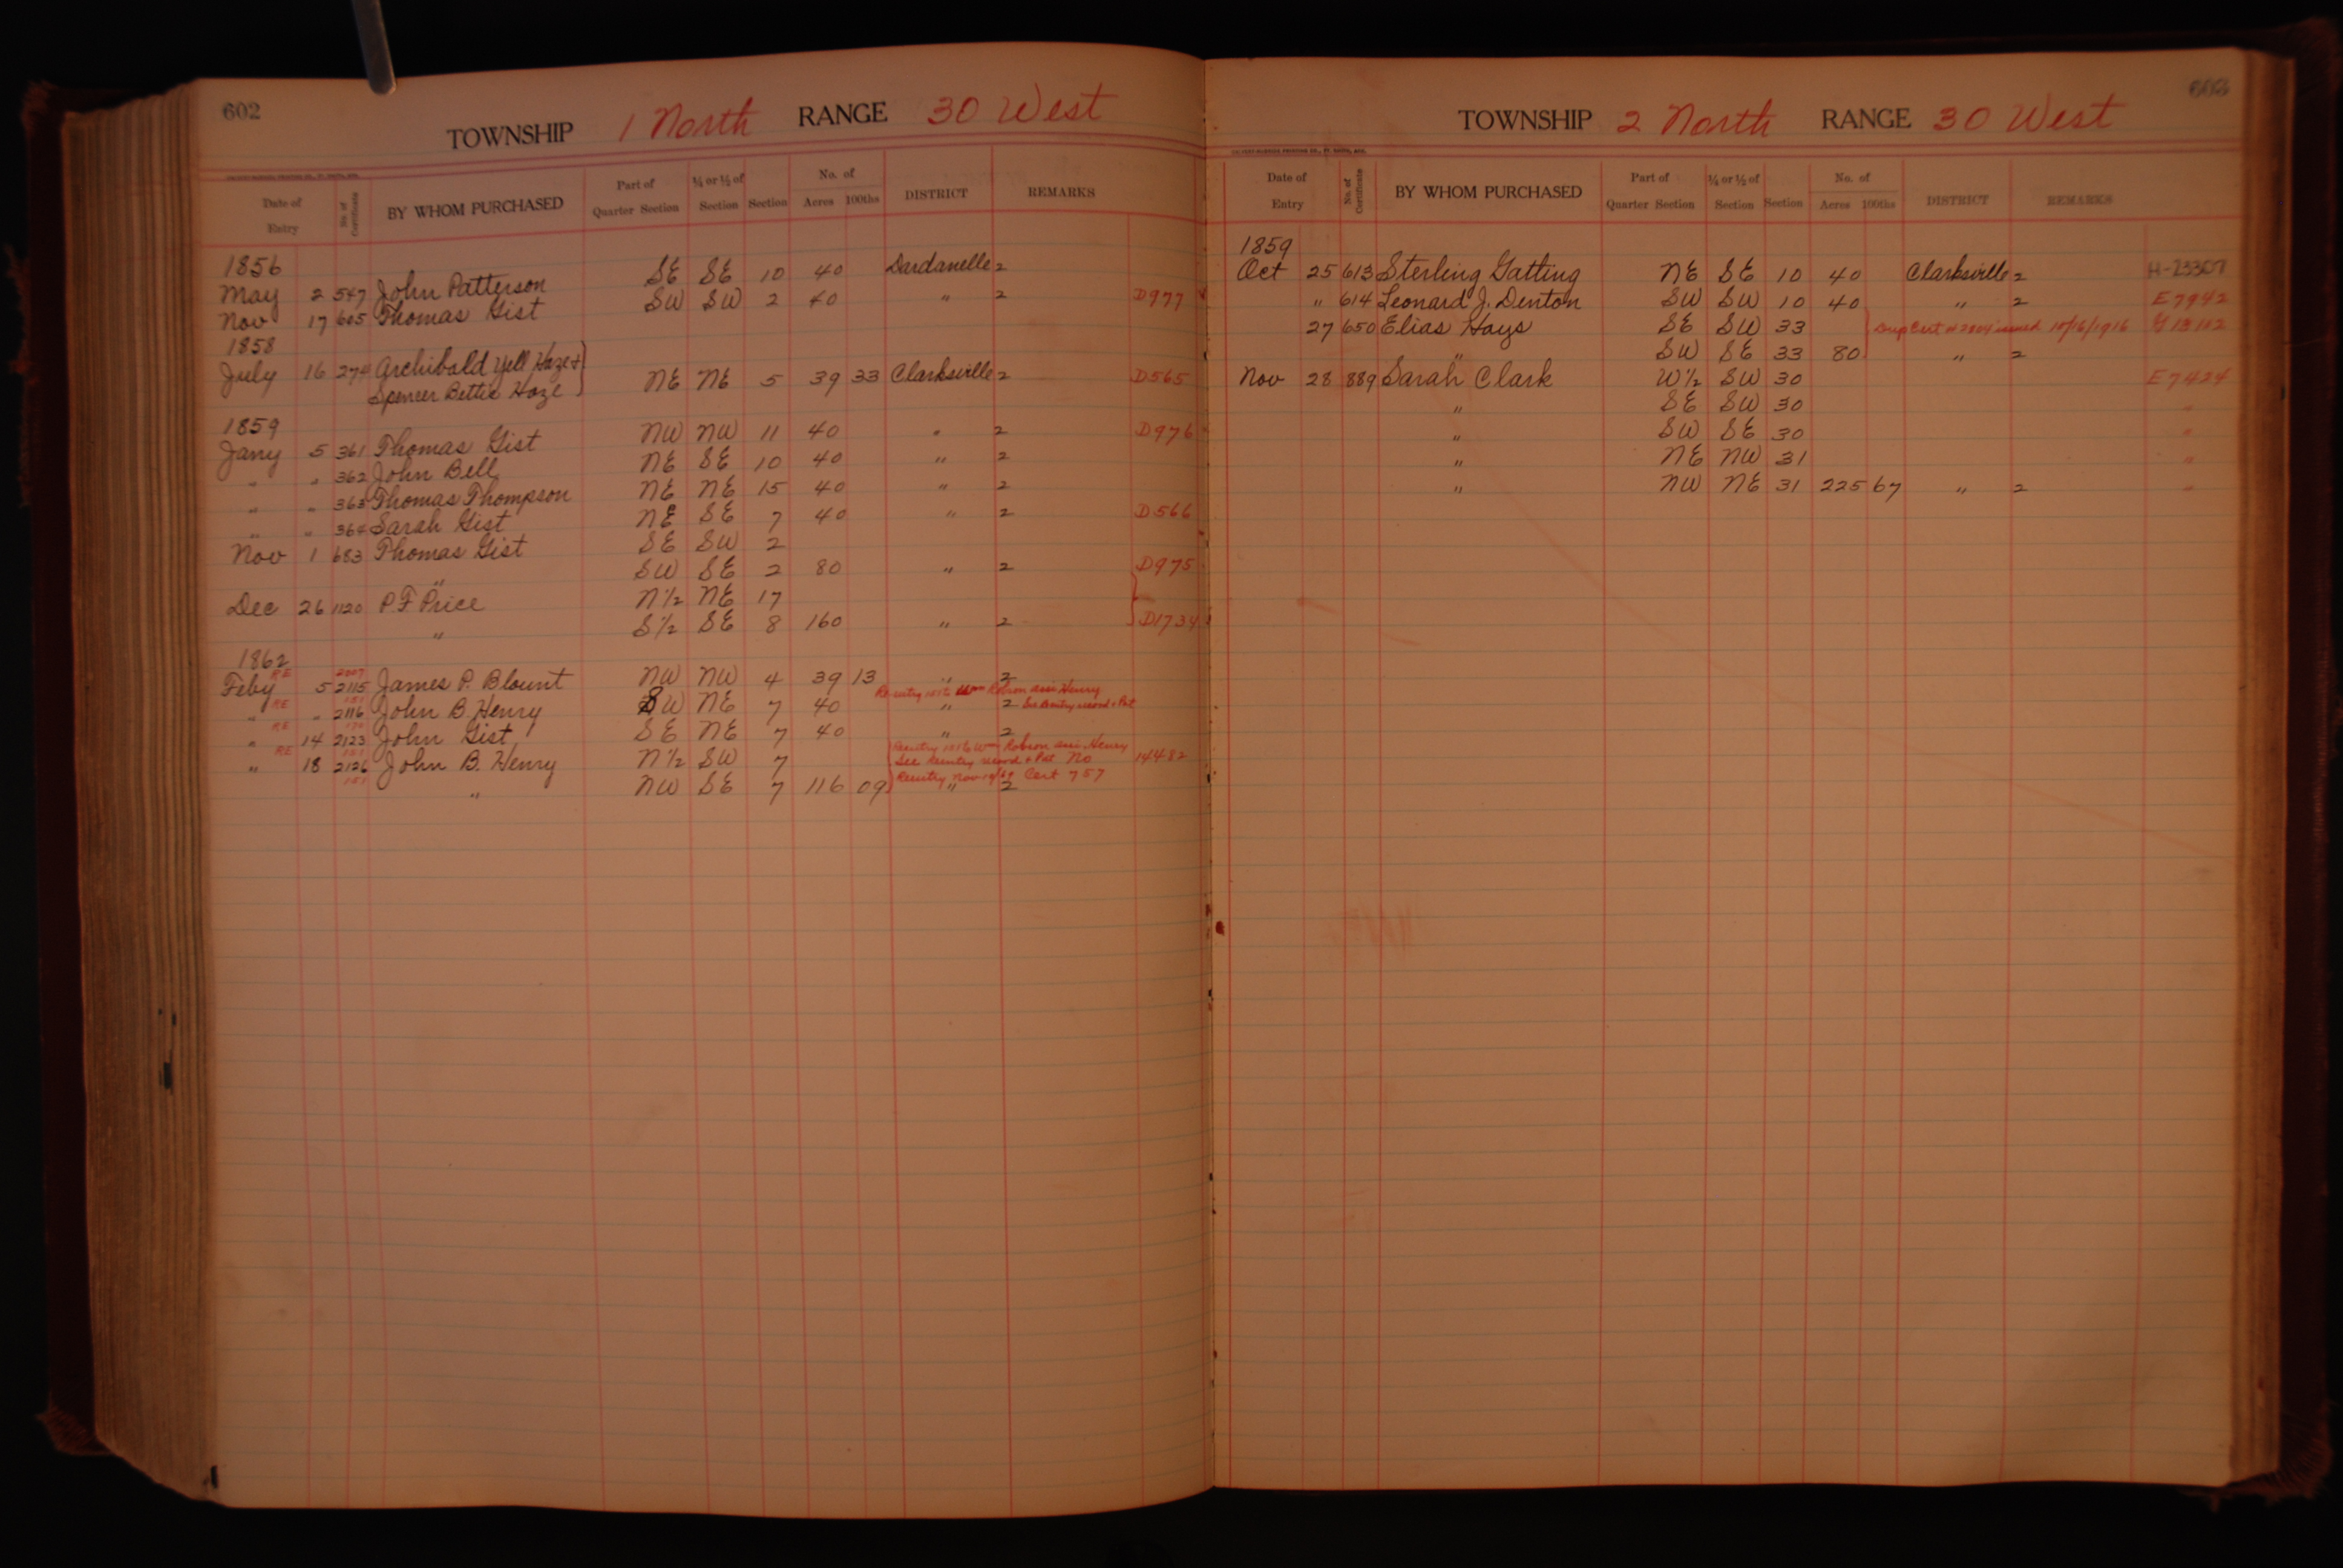 602
TOWNSHIP 1 North RANGE 30 West
Date of Entry No. of Certificate BY WHOM PURCHASED Part of Quarter Section ¼ or ½ of Section Section No. of Acres 100ths DISTRICT REMARKS
1856
May 2 547 John Patterson SE SE 10 40 Dardanelle 2
Nov 17 605 Thomas Gist SW SW 2 40 " 2 D977
1858
July 16 274 Archibald Yell Haze +
Spencer Bettie Haze } NE NE 5 39 33 Clarksville 2 D565
1859
Jany 5 361 Thomas Gist NW NW 11 40 " 2 D976
" " 362 John Bell NE SE 10 40 " 2
" " 363 Thomas Thompson NE NE 15 40 " 2
" " 364 Sarah Gist NE SE 7 40 " 2 D566
Nov 1 683 Thomas Gist SE SW 2
" SW SE 2 80 " 2 D975
Dec 26 1120 P F Price N½ NE 17
" S½ SE 8 160 " 2 } D1734
1862
RE 2007
Feby 5 2115 James P. Blount NW NW 4 39 13 " 2
RE 151 Reentry 1516 Wm Robson assi Henry
" " 2116 John B. Henry SW NE 7 40 " 2 See Reentry record + Pat
RE
" 14 2123 John Gist SE NE 7 40 " 2
RE 151 Reentry 1516 Wm Robson assi Henry
" 18 2126 John B. Henry N½ SW 7 See Reentry record + Pat No 14482
151 Reentry Nov Cert 757
" NW SE 7 116 09 " 2
TOWNSHIP 2 North RANGE 30 West
603
Date of Entry No. of Certificate BY WHOM PURCHASED Part of Quarter Section ¼ or ½ of Section Section No. of Acres 100ths DISTRICT REMARKS
1859
Oct 25 613 Sterling Gatting NE SE 10 40 Clarksville 2 H-23307
" 614 Leonard J. Denton SW SW 10 40 " 2 E7942
27 650 Elias Hays SE SW 33 Dup Cert issued 10/16/1916
" SW SE 33 80 " 2
Nov 28 889 Sarah Clark W½ SW 30 E7424
" SE SW 30 "
" SW SE 30 "
" NE NW 31 "
" NW NE 31 225 67 " 2 "